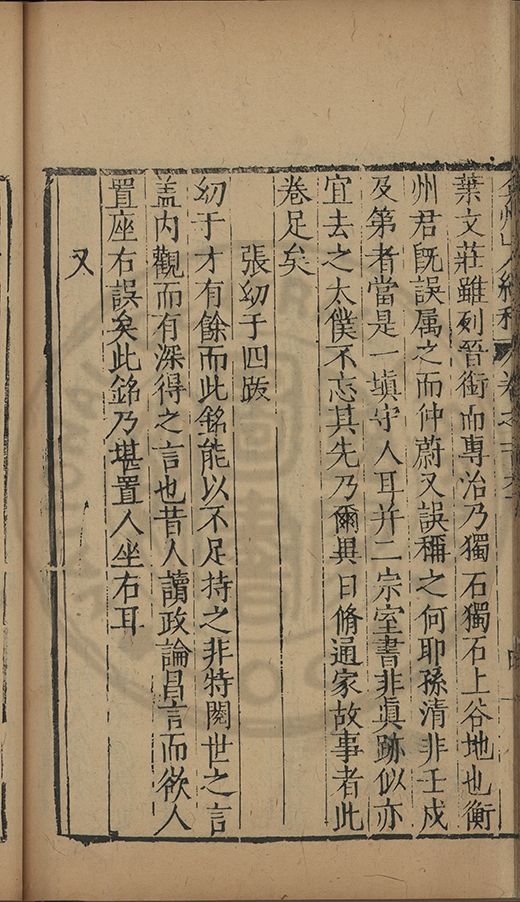 葉文莊雖列晉銜而專治乃獨石獨石上谷地也衡
州君旣誤属之而仲蔚又誤稱之何耶孫清非壬戍
及第者當是一塡守人耳并二宗室書非眞跡似亦
宜去之太僕不忘其先乃爾異日脩通家故事者此
卷足矣
張幼于四跋
幼于才有餘而此銘能以不足持之非特閱世之言
盖内觀而有深得之言也昔人讀政論昌言而欲人
置座右誤矣此銘乃堪置人坐右耳
又